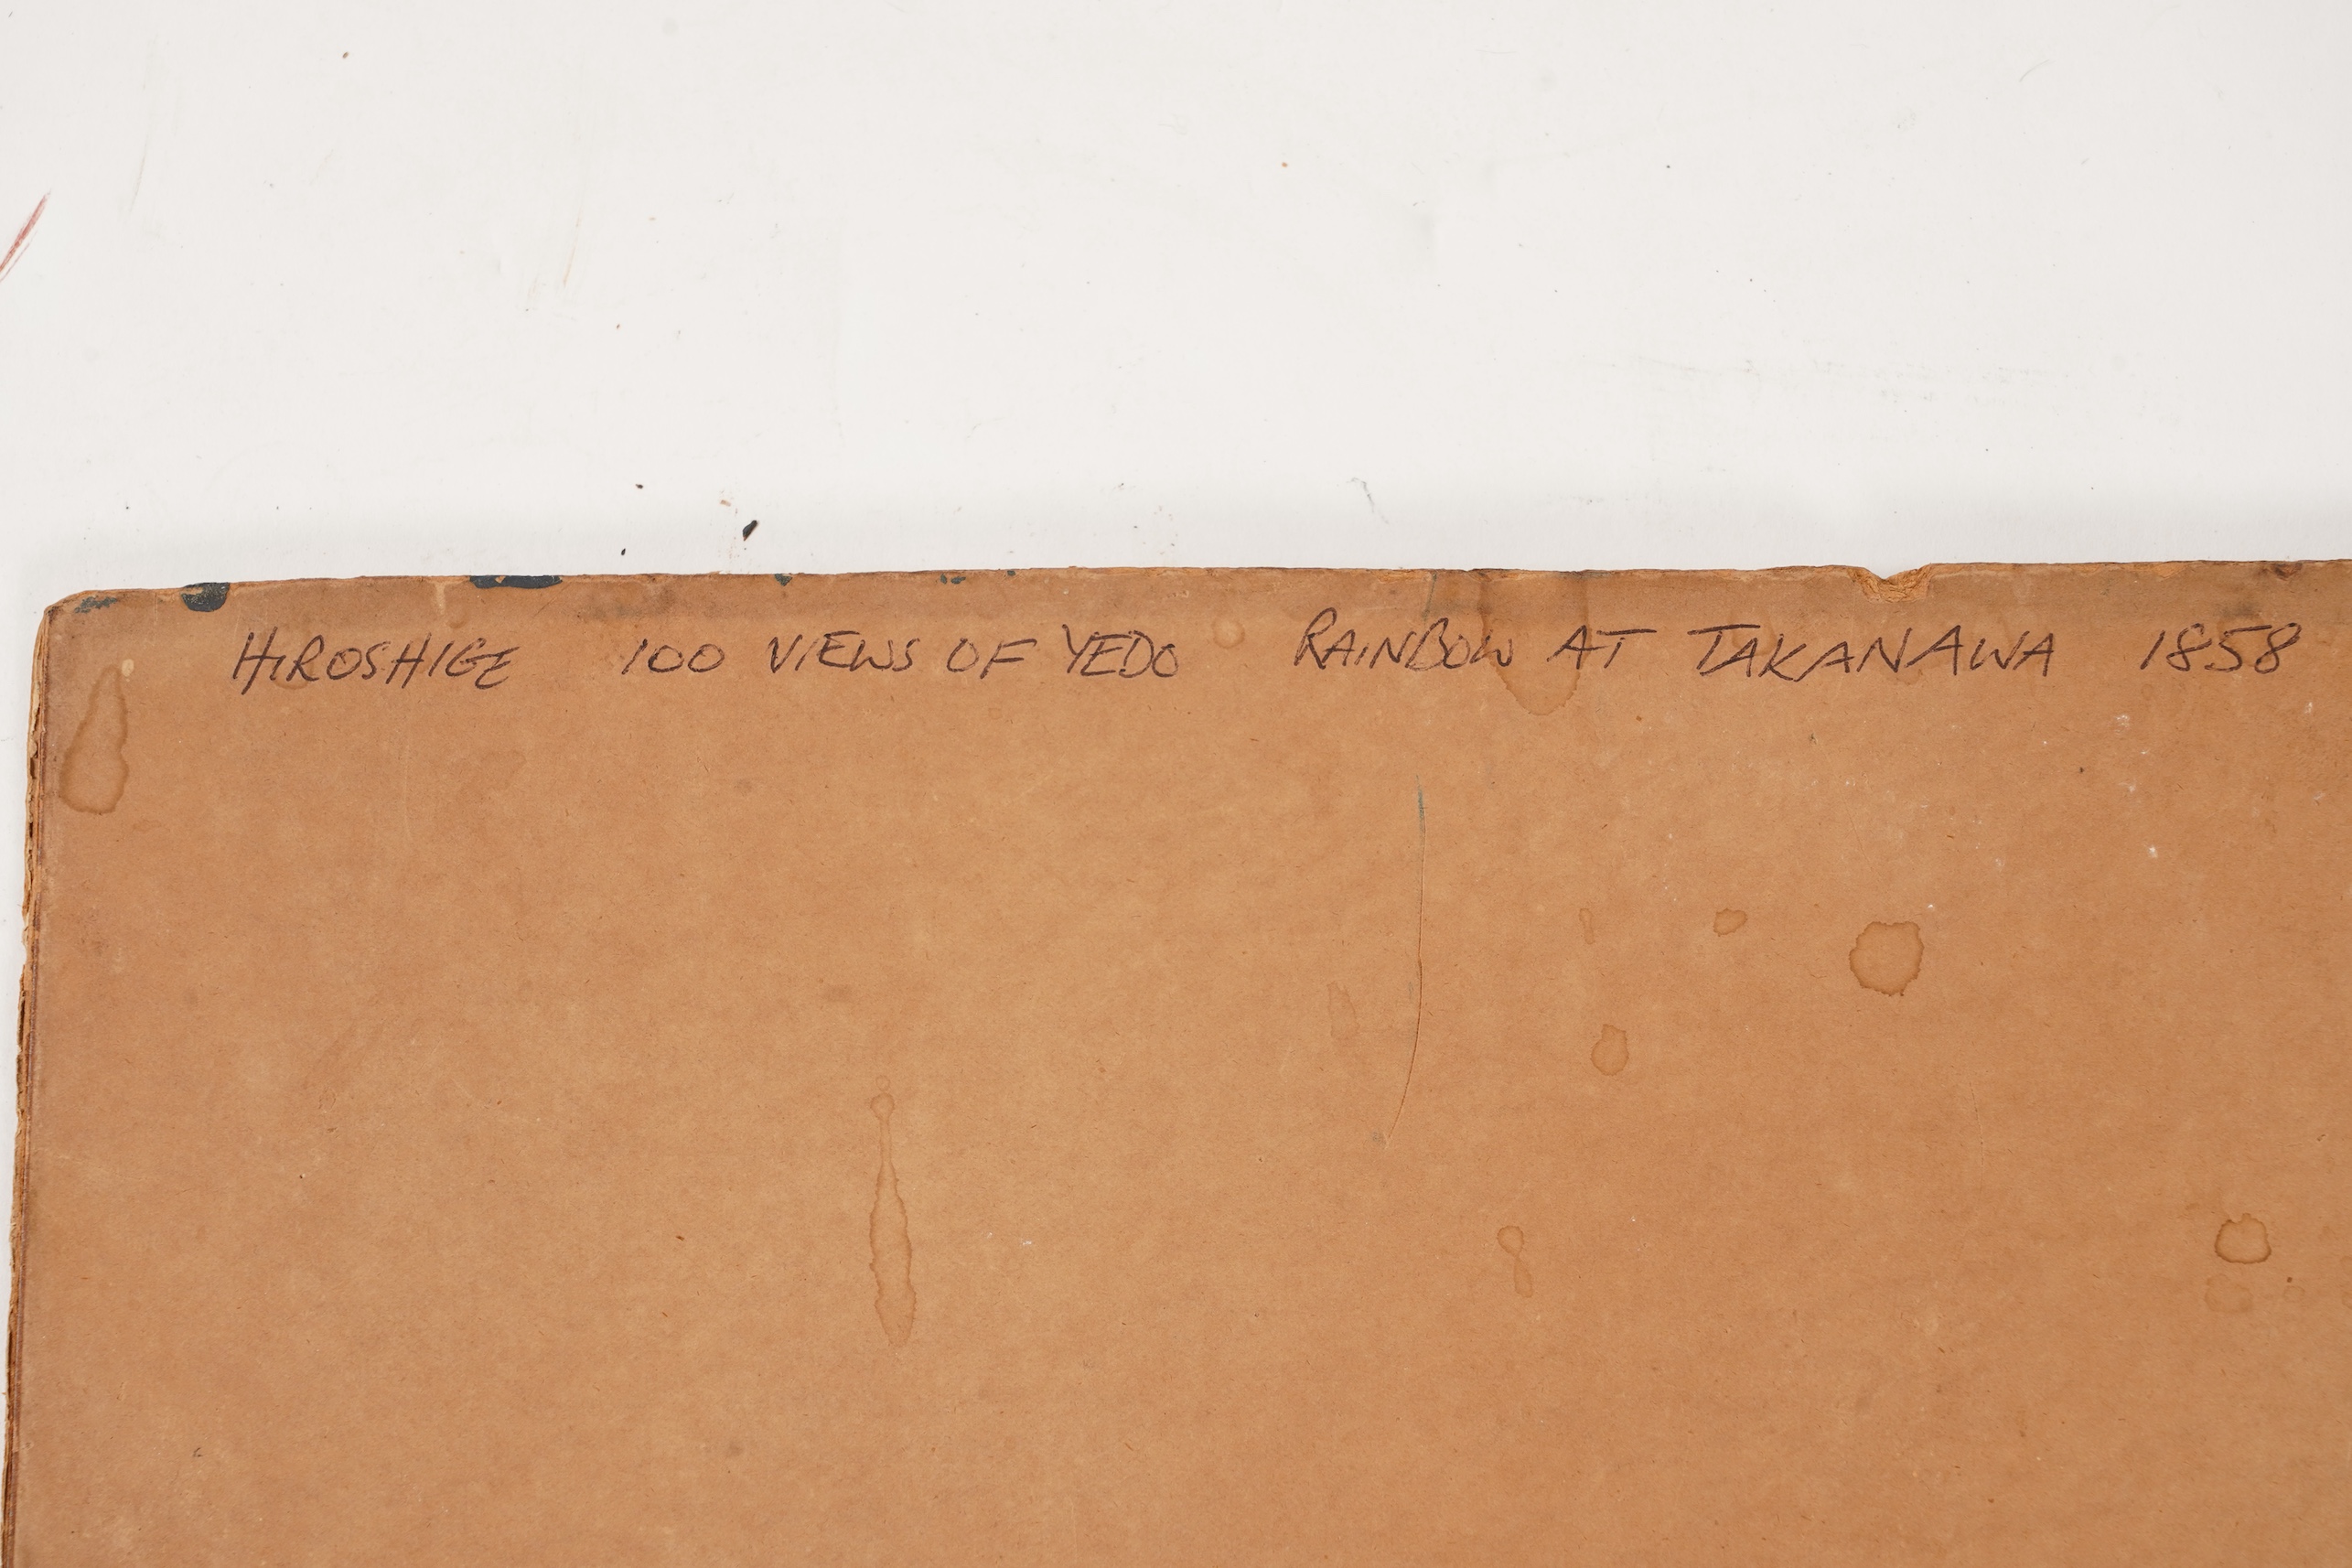 HIROSHIGE 100 VIEWS OF YEDO RAINBOW AT TAKANAWA 1858